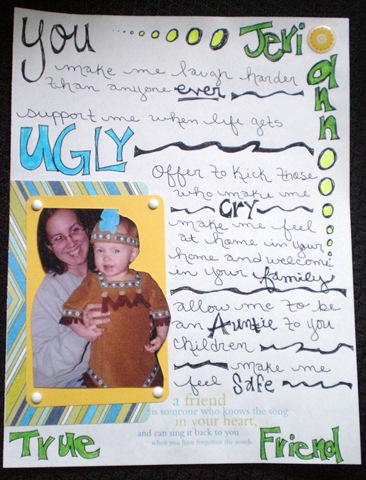 You
Jeri ann
make me laugh harder
than anyone ever
support me when life gets
UGLY
Offer to kick those
who make me
cry
make me feel
at home in your
home and welcome
in your family
allow me to be
an Auntie to you
children
make me
feel Safe
a friend
is someone who knows the song
in your heart,
and can sing it back to you
when you have forgotten the words.
True Friend